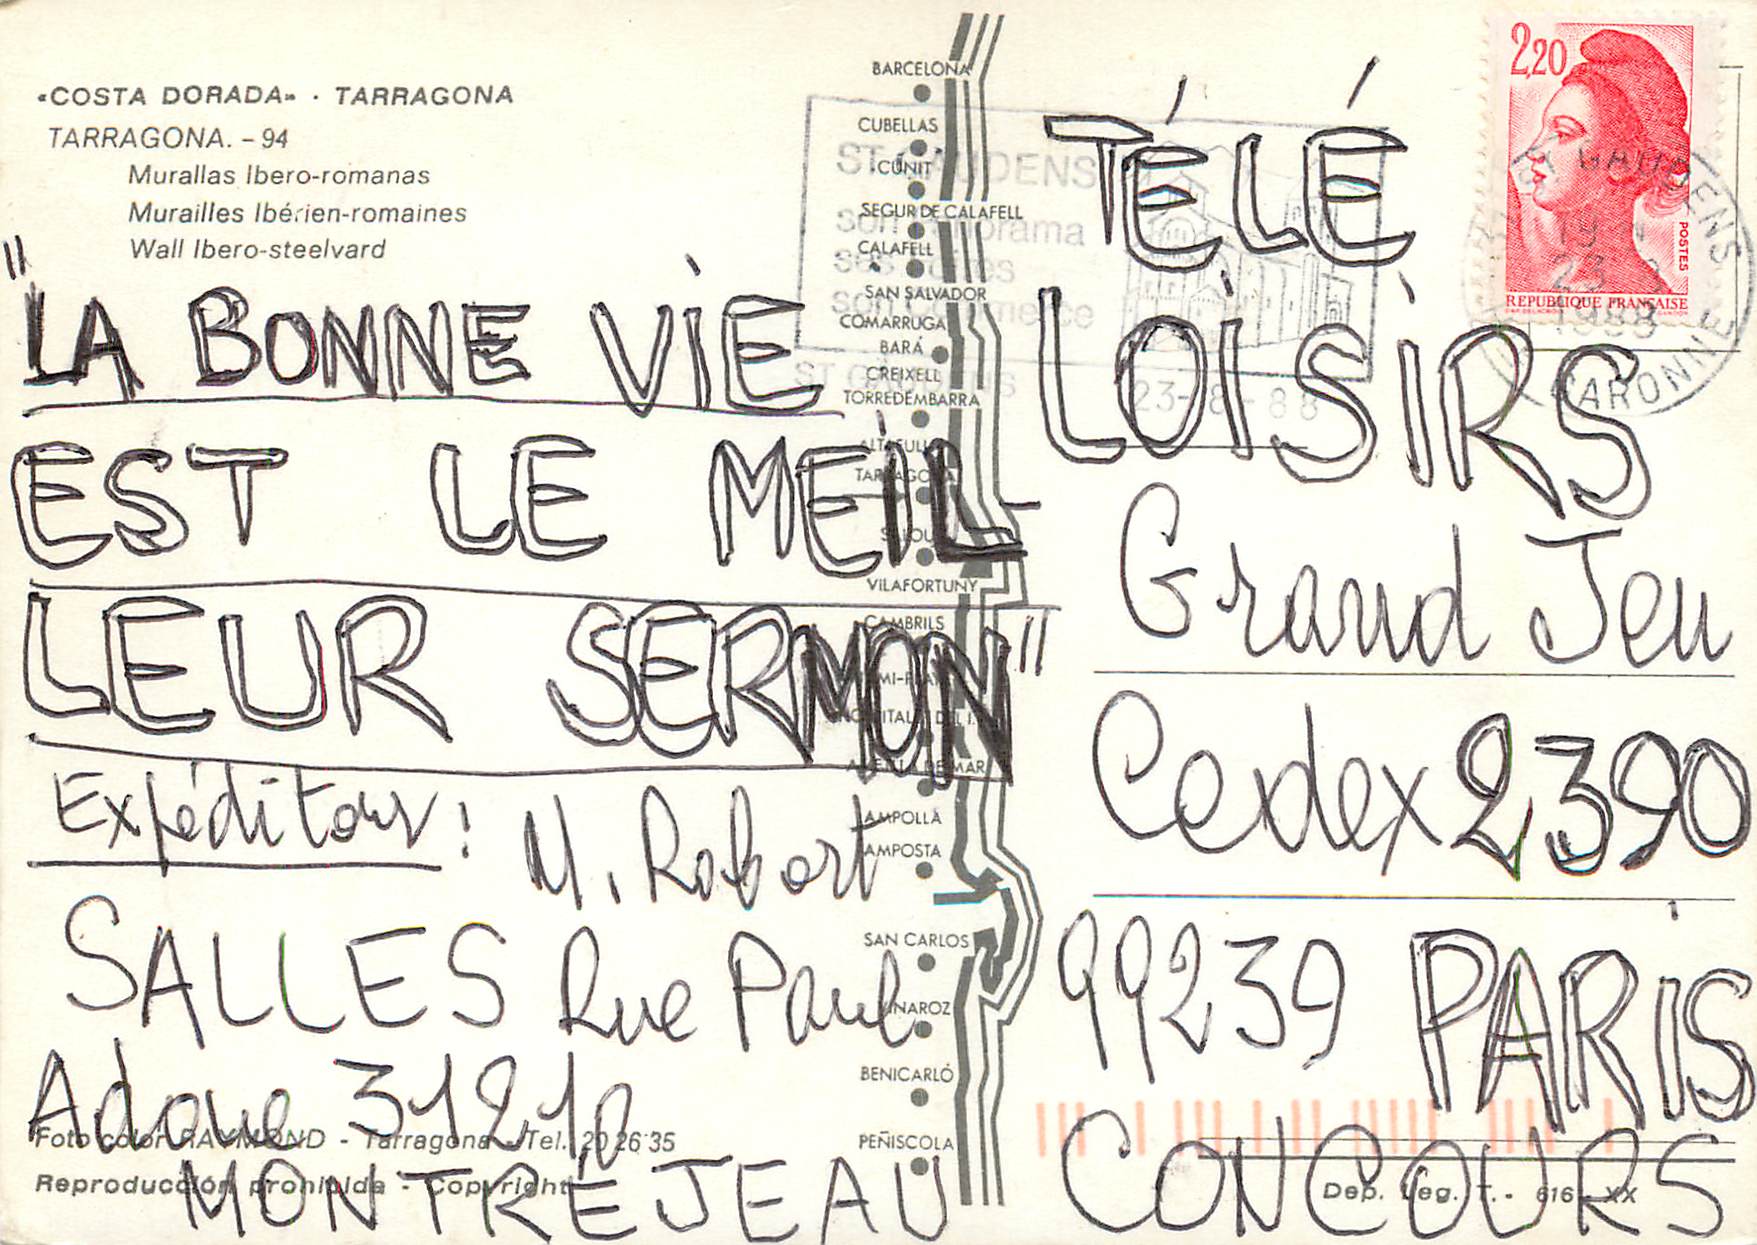 «COSTA DORADA» · TARRAGONA
TARRAGONA. – 94
Murallas Ibero-romanas
Murailles Ibérien-romaines
Wall Ibero-steelvard
"LA BONNE VIE
EST LE MEIL-
LEUR SERMON"
Expéditeur :
M. Robert
SALLES Rue Paul
Adoue 31210
MONTRÉJEAU
Foto color RAYMOND - Tarragona - Tel. 20 26 35
Reproducción prohibida - Copyright
BARCELONA
CUBELLAS
CUNIT
SEGUR DE CALAFELL
CALAFELL
SAN SALVADOR
COMARRUGA
BARÁ
CREIXELL
TORREDEMBARRA
ALTAFULLA
TARRAGONA
SALOU
VILAFORTUNY
CAMBRILS
AMPOLLA
AMPOSTA
SAN CARLOS
VINAROZ
BENICARLÓ
PEÑISCOLA
ST GAUDENS
son panorama
son commerce
ST GAUDENS
23-8-88
2,20
POSTES
REPUBLIQUE FRANÇAISE
ST GAUDENS
23 8
1988
GARONNE
TÉLÉ
LOISIRS
Grand Jeu
Cedex 2390
99239 PARIS
CONCOURS
Dep. Leg. T. - 616 - XX